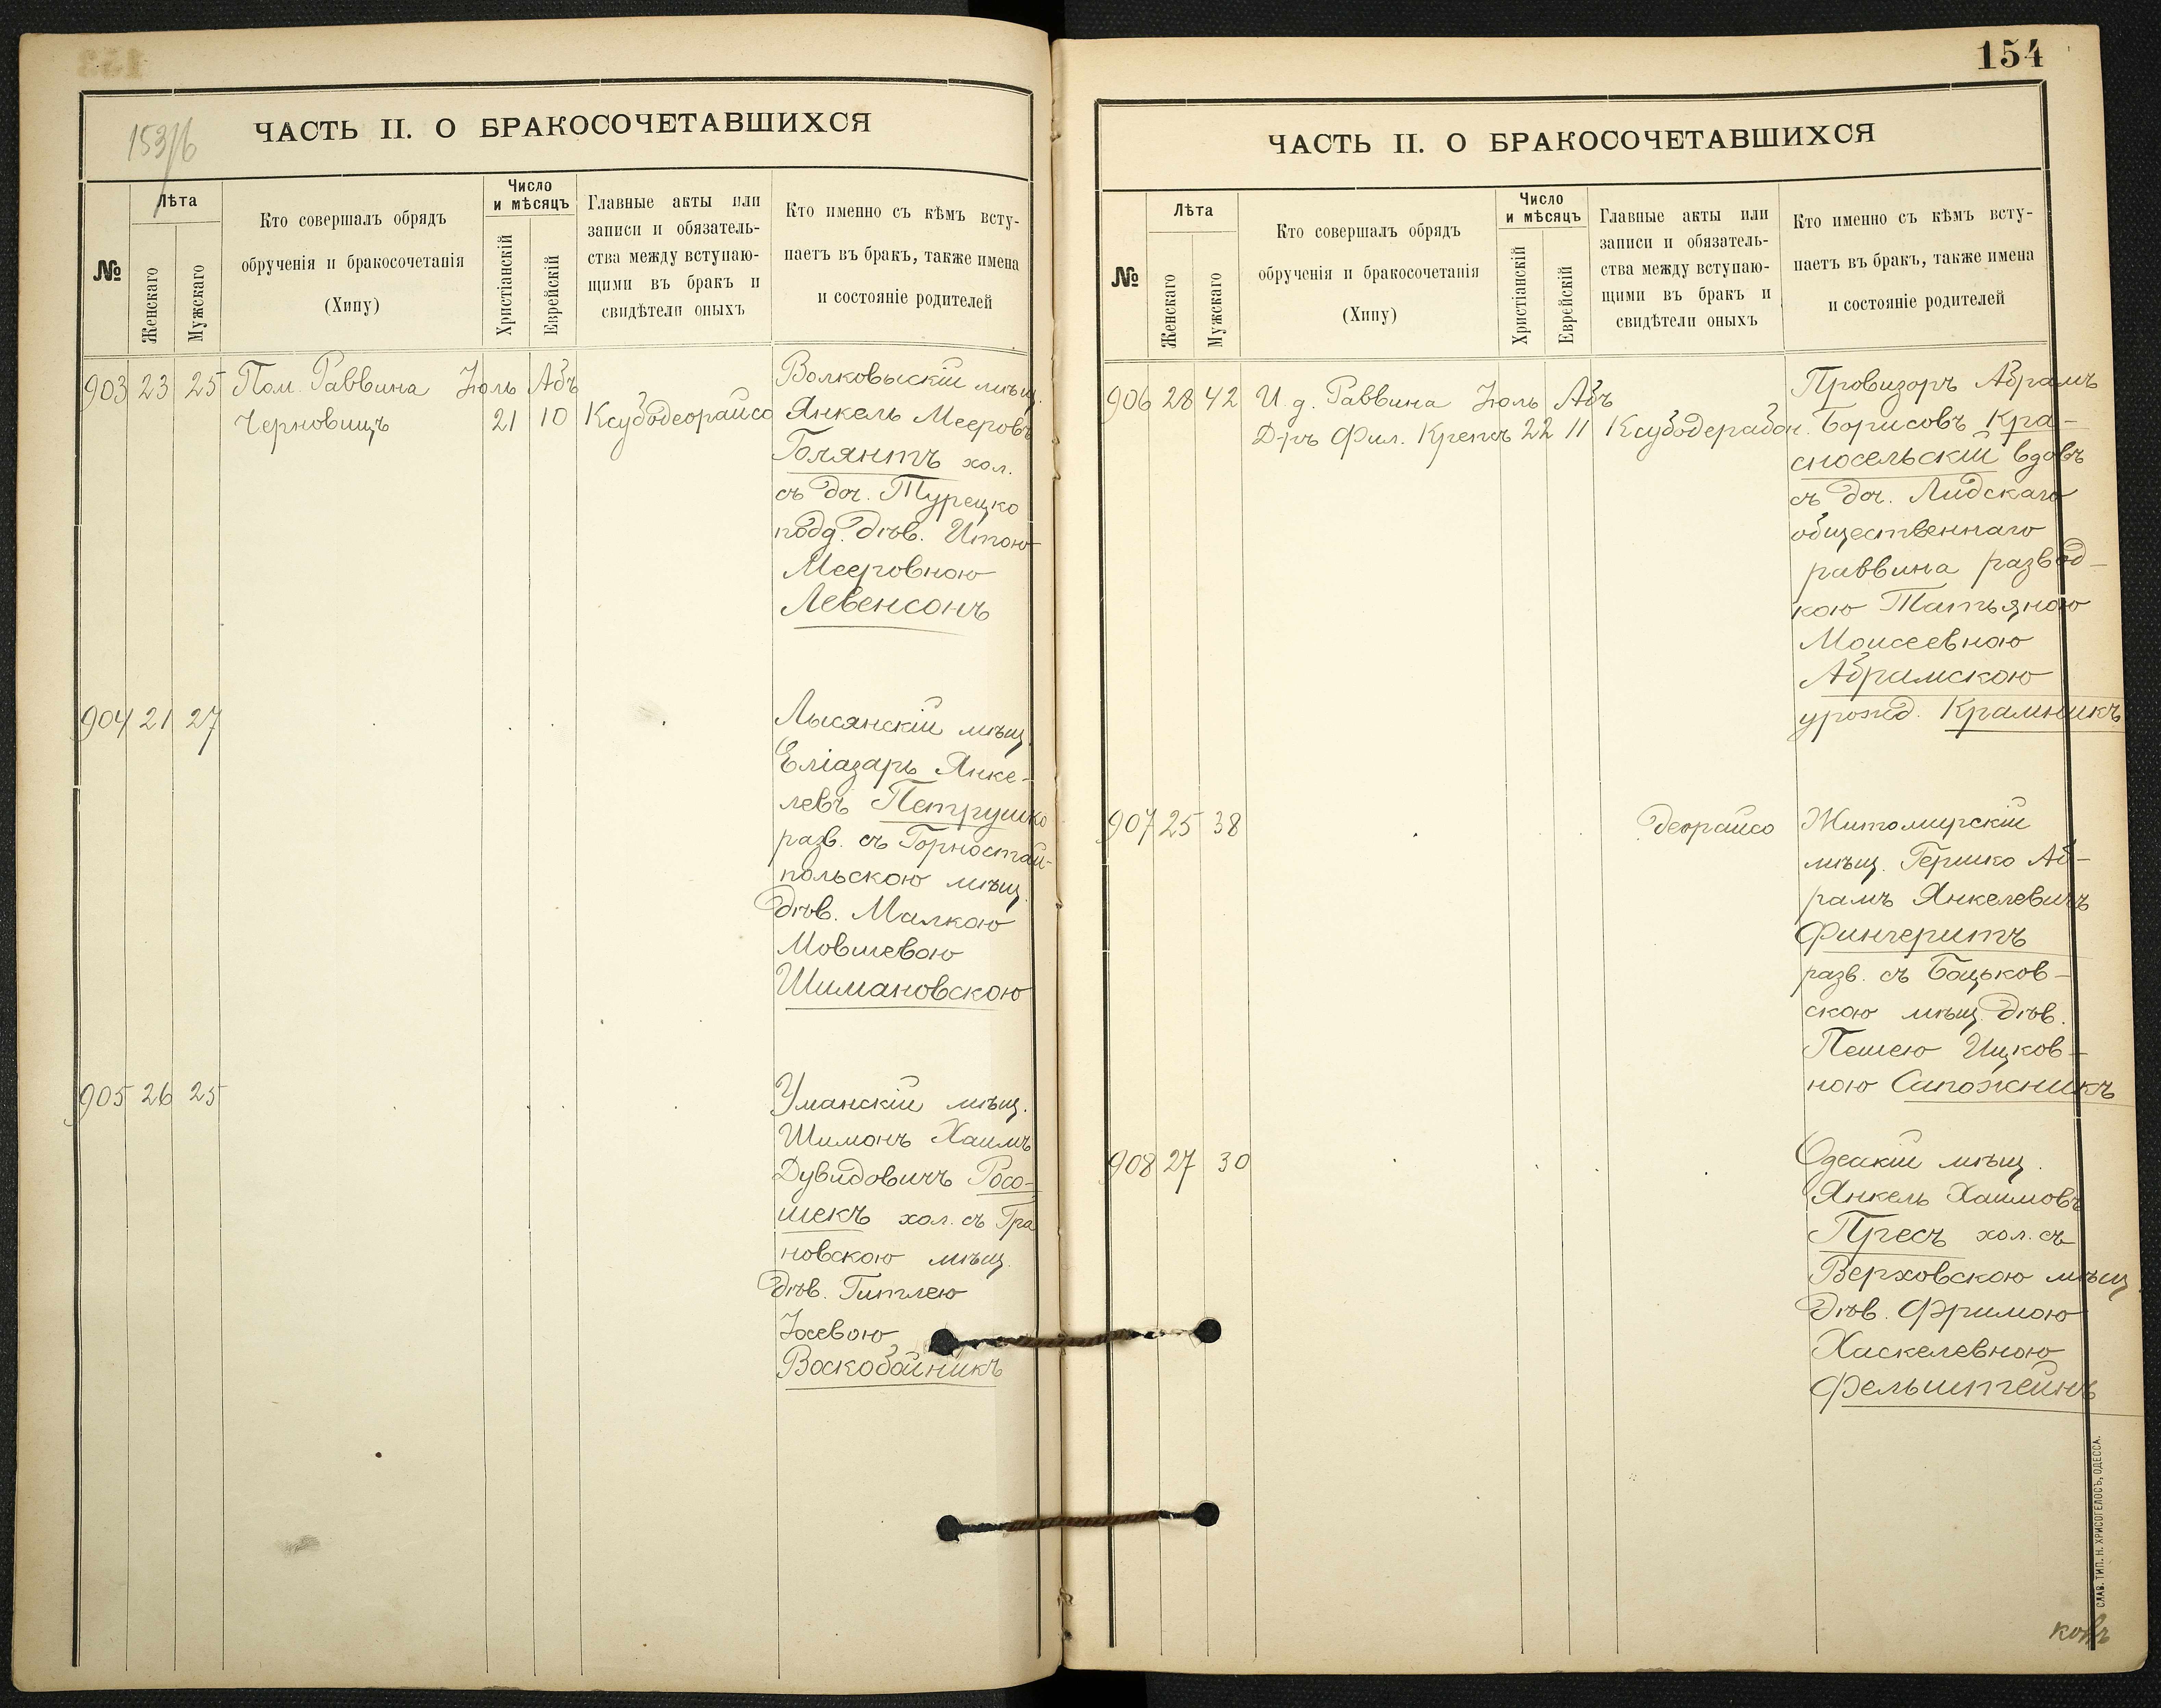 153/б
ЧАСТЬ II. О БРАКОСОЧЕТАВШИХСЯ
№
Лѣта
Женскаго
Мужскаго
Кто совершалъ обрядъ
обрученія и бракосочетанія
(Хипу)
Число
и мѣсяцъ
Христіанскій
Еврейскій
Главные акты или
записи и обязатель-
ства между вступаю-
щими въ бракъ и
свидѣтели оныхъ
Кто именно съ кѣмъ всту-
паетъ въ бракъ, также имена
и состояніе родителей
903 23 25 Пом. Раввина Іюль Абъ
Черновицъ 21 10 Ксубодеорайсо
Волковыскій мѣщ.
Янкель Мееровъ
Голянтъ хол.
съ доч. Турецко
подд. дѣв. Итою
Мееровною
Левенсонъ
904 21 27
Лысянскій мѣщ.
Еліазаръ Янке-
левъ Петрушко
разв. съ Горностай-
польскою мѣщ.
дѣв. Малкою
Мовшевою
Шимановскою
905 26 25
Уманскій мѣщ.
Шимонъ Хаимъ
Дувидовичъ Росо-
шекъ хол. съ Гра
новскою мѣщ.
дѣв. Гитлею
Іосевою
Воскобойникъ
154
ЧАСТЬ II. О БРАКОСОЧЕТАВШИХСЯ
№
Лѣта
Женскаго
Мужскаго
Кто совершалъ обрядъ
обрученія и бракосочетанія
(Хипу)
Число
и мѣсяцъ
Христіанскій
Еврейскій
Главные акты или
записи и обязатель-
ства между вступаю-
щими въ бракъ и
свидѣтели оныхъ
Кто именно съ кѣмъ всту-
паетъ въ бракъ, также имена
и состояніе родителей
906 28 42 И. д. Раввина Іюль Абъ
Д-ръ Фил. Крепсъ 22 11 Ксубодерабон.
Провизоръ Абрамъ
Борисовъ Кра-
сносельскій вдовъ
съ доч. Лидскаго
общественнаго
раввина развод-
кою Татьяною
Моисеевною
Абрамскою
урожд. Крамникъ
907 25 38 деорайсо
Житомирскій
мѣщ. Гершко Аб-
рамъ Янкелевичъ
Фингеритъ
разв. съ Бацьков-
скою мѣщ. дѣв.
Пешею Ицков-
ною Сапожникъ
908 27 30
Одескій мѣщ.
Янкель Хаимовъ
Пресъ хол. съ
Верховскою мѣщ
дѣв. Фримою
Хаскелевною
Фельштейнъ
СЛАВ. ТИП. Н. ХРИСОГЕЛОСЪ, ОДЕССА.